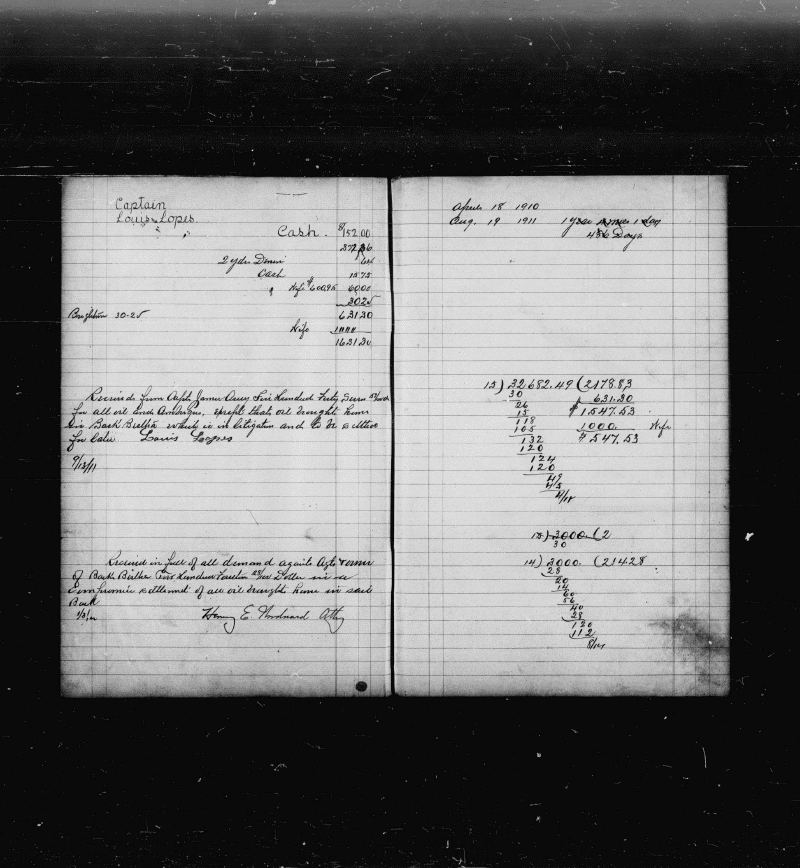 Captain
Louis Lopes.
Cash. $152.00
37 36
2 yds Denim
Cash 15 75
Wife $600.95 60 00
30 25
Brighton 30-25 631 20
Wife 1000
1631 20
Received from Capt James Avey Five Hundred Forty Seven
for all oil and Ambergris, except that oil brought home
in Bark Bertha which is in litigation and to be settled
for later Louis Lopes
9/13/11
Received in full of all demand against Agts & owner
of Bark Bertha Two Hundred Fourteen 28/100 Dollars in
Compromise settlement of all oil brought home in said
Bark
Henry E. Woodward Atty
April 18 1910
Aug. 19 1911 1 year 4 mos 1 day
486 Days
15) 32682.49 (2178.83
30 631.30
26 $1547.53
15
118 1000. Wife
105 $547.53
132
120
124
120
49
45
4/15
15) 3000 (2
30
14) 3000. (214.28
28
20
14
60
56
40
28
120
112
8/14